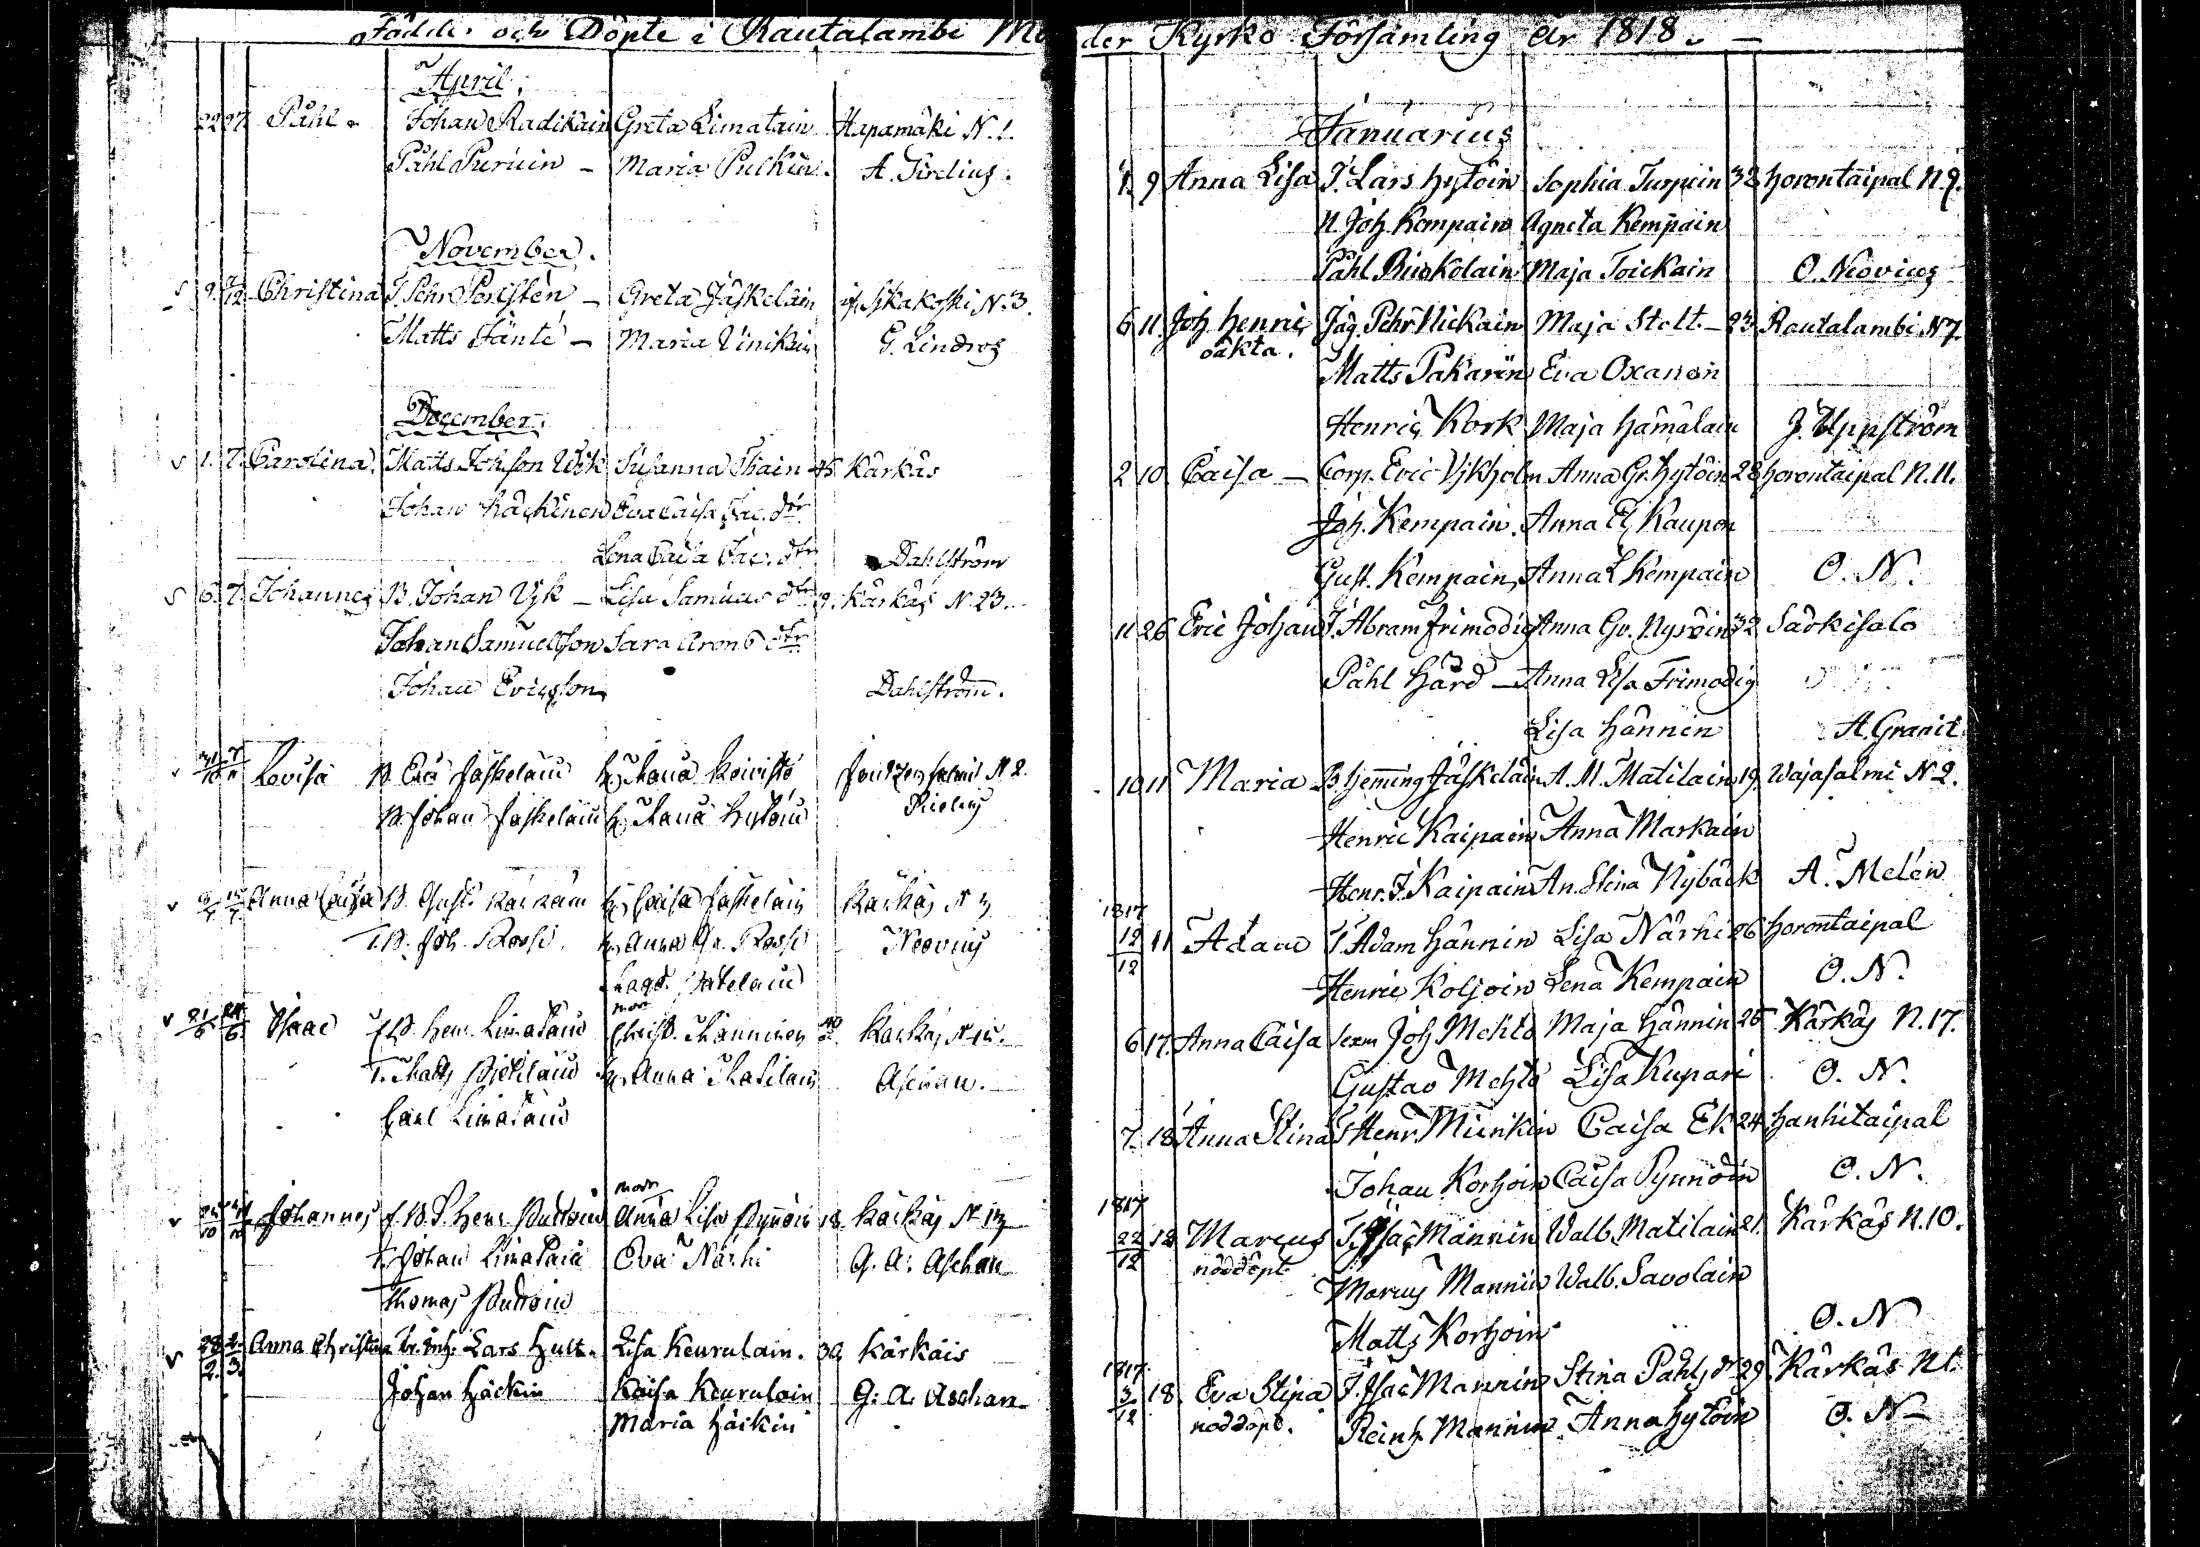 Födde och Döpte i Rautalambi Moder Kyrko Församling år 1818.
April.
22 27. Påhl. Johan Radikain Greta Limatain Hapamäki N. 1.
Påhl Puruin - Maria Pulkin. A. Sirelius.
November.
9. 7/12 Christina T. Pehr Pertsten - Greta Jäskeläin Istrakoski N. 3.
Matts Jänte - Maria Vinikain G. Lindros
December.
1. 7. Carolina. Matts Johsson Wik Susanna Thain 45 Kärkäs
Johan Häckinen Eva Caisa Jac. dtr.
Lena Caisa Jac. dtr. Dahlström
6. 7. Johannes B. Johan Vik - Lisa Samuels dtr. 9. Kärkäs N. 23.
Johan Samuelsson Sara Arons dtr.
Johan Ericsson Dahlström.
Lovisa B. Eric Jäskeläin h. Maria Koivisto N 2.
B. Johan Jäskeläin h. Maria Hytöin
Anna Caisa B. Gust. h. Caisa Jäskeläin Kärkäs N 3
T.B. Joh. Rossi. h. Anna Gr. Rossi Neovius
21/6 24/6 Isaac B. Henr. Limatain mor Christ. Manninen 40 Kärkäs
T. Matts h. Anna Matilain Aschan.
Carl Limatain
mor
Johannes Henr. Puttoin Anna Lisa Pynnöin 18 Kärkäs N 13
T. Johan Limatain Eva Närhi G. A. Aschan
Thomas Puttoin
28/2. 2/3. Anna Christina Lars Hult. Lisa Keurulain. 32 Kärkäis
Johan Häckin Kaisa Keurulain G. A. Aschan
Maria Häckin
Januarius
1. 9 Anna Lisa T. Lars Hytöin Sophia Turpein 32 Horontaipal N. 9.
N. Joh. Kempain Agneta Kempain
Påhl Ruokolain Maja Toickain O. Neovius
6 11. Joh Henric Jäg. Pehr Nickain Maja Stolt. - 23. Rautalambi N 7.
oäkta.
Matts Pakarin Eva Oxanen
Henric Kork Maja Hämäläin J. Uppström
2 10 Caisa - Corp. Eric Vikholm Anna Gr. Hytöin 28 Horontaipal N. 11.
Joh. Kempain. Anna El. Kaupen
Gust. Kempain, Anna L Kempain O. N.
11 26 Eric Johan T. Abram Frimodig Anna Gr. Nyröin 32 Särkisalo
Påhl Hård - Anna Lisa Frimodig
Lisa Hännin A. Granit.
10 11 Maria B. Hemming Jäskeläin A. M. Matilain 19. Wajasalmi N 2.
Henric Kaipain Anna Markain
Henr. J. Kaipain An. Stina Nybäck A. Melén
1817
12/12 11 Adam T. Adam Hännin Lisa Närhi 26 Horontaipal
Henric Koljoin Lena Kempain O. N.
6 17. Anna Caisa Joh Mehto Maja Hännin 25 Kärkäs N. 17.
Gustav Mehto Lisa Kupari O. N.
7. 18 Anna Stina T. Henr. Minkin Caisa Ek 24 Hanhitaipal
Johan Korhoin Caisa Pynnöin O. N.
1817
22/12 18 Marcus T. Isac Männin Walb. Matilain 21. Kärkäs N. 10.
nöddöpt
Marcus Mannin Walb. Savolain
Matts Korhoin O. N
1817
3/12 18. Eva Stina T. Isac Mannin Stina Påhls dr 29. Kärkäs N 1.
nöddöpt. Reinh. Mannin Anna Hytöin O. N